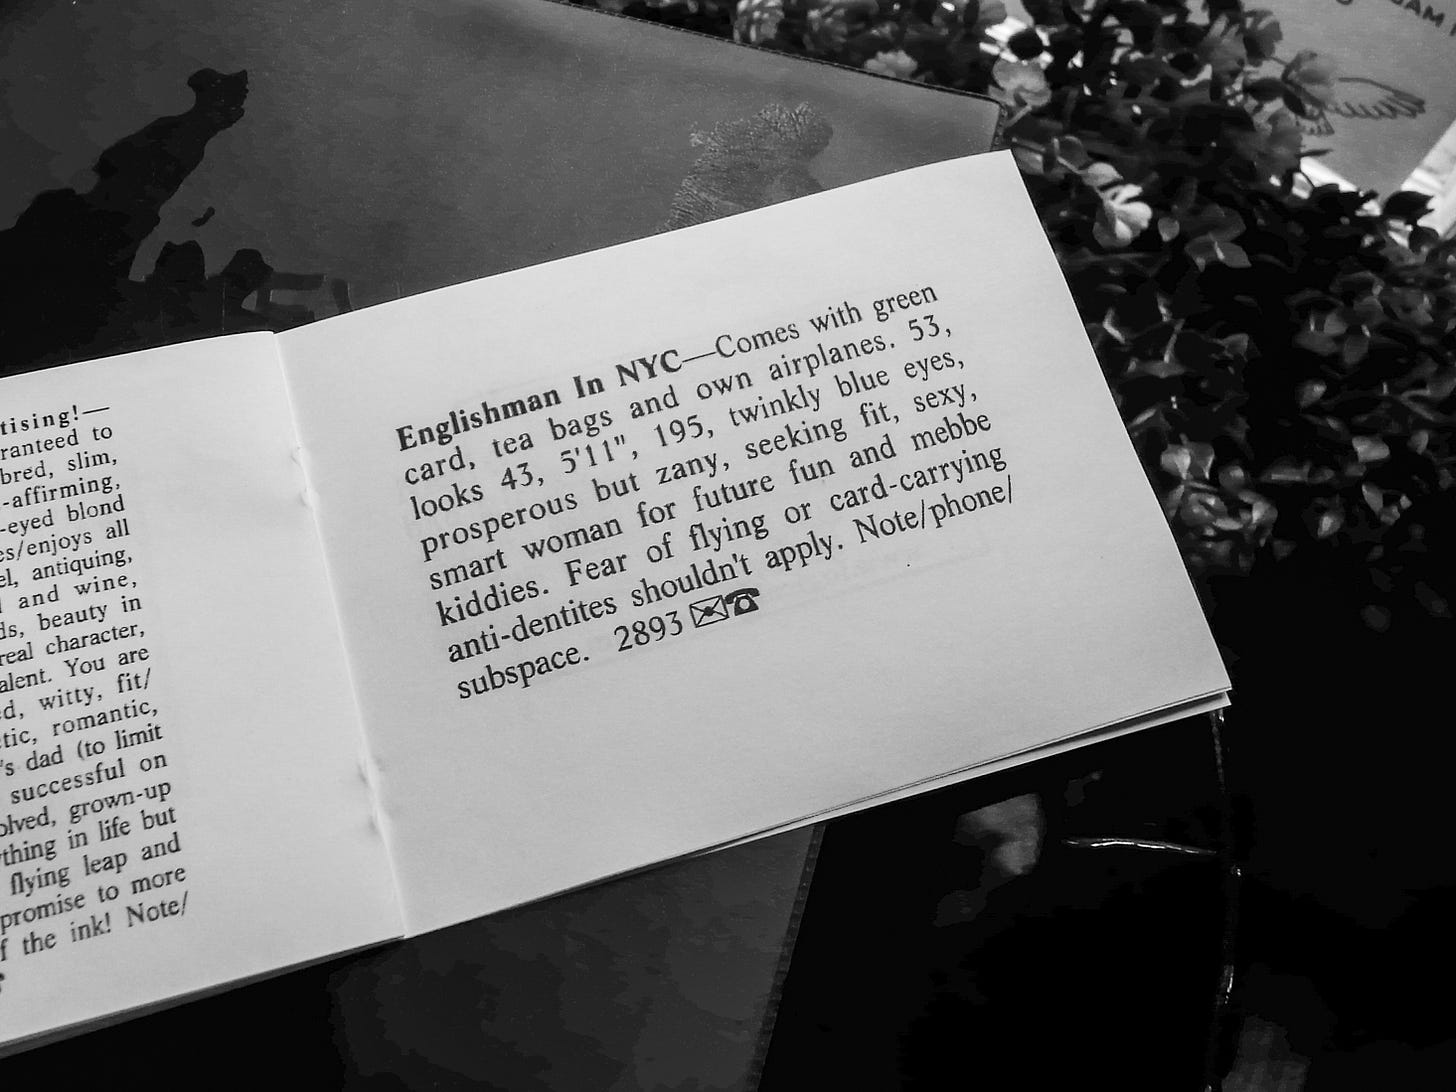 tising!—
ranteed to
bred, slim,
-affirming,
-eyed blond
es/enjoys all
el, antiquing,
and wine,
ds, beauty in
real character,
alent. You are
ed, witty, fit/
tic, romantic,
's dad (to limit
successful on
olved, grown-up
thing in life but
flying leap and
promise to more
f the ink! Note/
Englishman In NYC—Comes with green
card, tea bags and own airplanes. 53,
looks 43, 5'11", 195, twinkly blue eyes,
prosperous but zany, seeking fit, sexy,
smart woman for future fun and mebbe
kiddies. Fear of flying or card-carrying
anti-dentites shouldn't apply. Note/phone/
subspace. 2893 ✉☎